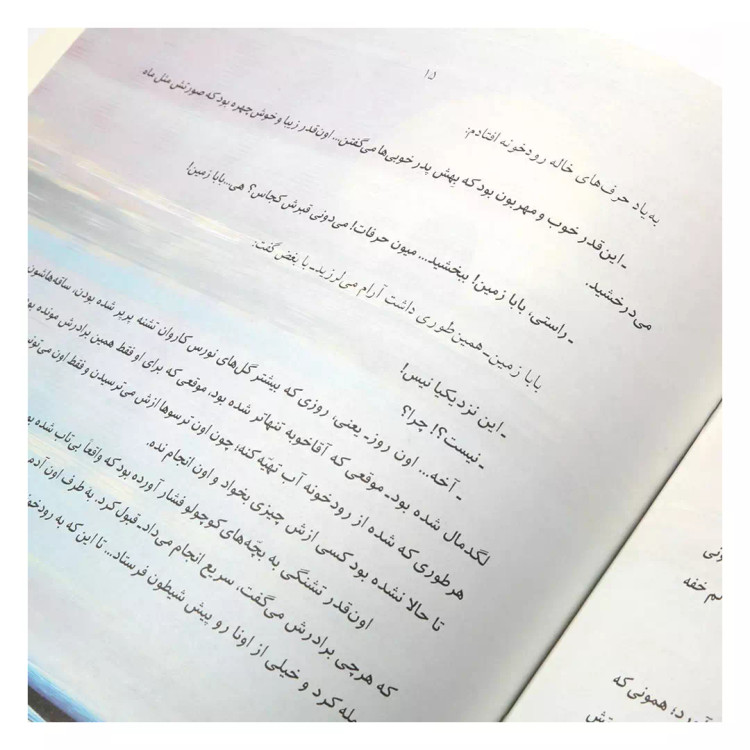 ۱۵
به یاد حرف‌های خاله رودخونه افتادم:
ـ این قدر خوب و مهربون بود که بهش پدر خوبی‌ها می‌گفتن... اون قدر زیبا و خوش چهره بود که صورتش مثل ماه
می‌درخشید.
ـ راستی، بابا زمین! ببخشید... میون حرفات! می‌دونی قبرش کجاس؟ هی...بابا زمین!
بابا زمین ـ همین طوری داشت آرام می‌لرزید ـ با بغض گفت:
ـ این نزدیکیا نیس!
ـ نیست؟! چرا؟
ـ آخه... اون روز ـ یعنی، روزی که بیشتر گل‌های نورس کاروان تشنه پرپر شده بودن، ساقه‌هاشون
لگدمال شده بود ـ موقعی که آقا خوبه تنهاتر شده بود، موقعی که برای او فقط همین برادرش مونده
هر طوری که شده از رودخونه آب تهیّه کنه؛ چون اون ترسوها ازش می‌ترسیدن و فقط اون
تا حالا نشده بود کسی ازش چیزی بخواد و اون انجام نده.
اون قدر تشنگی به بچّه‌های کوچولو فشار آورده بود که واقعاً بی‌تاب شده
که هرچی برادرش می‌گفت، سریع انجام می‌داد ـ قبول کرد. به طرف اون آدم
کرد و خیلی از اونا رو پیش شیطون فرستاد... تا این که به
م خفه
همونی که